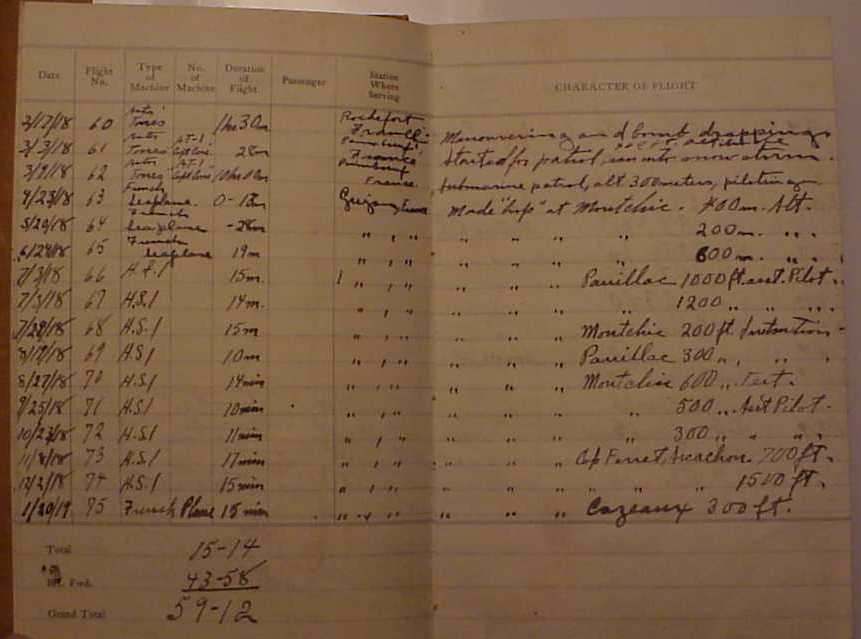 Date Flight No. Type of Machine No. of Machine Duration of Flight. Passenger Station Where Serving CHARACTER OF FLIGHT
2/17/18 60 Tores 1 hr 30 m Rochefort France. Manouvering and bomb dropping
3/3/18 61 Tores 28m France Started for patrol, ran into snow storm.
3/9/18 62 Tores France. Submarine patrol, alt 300 meters, piloting
4/23/18 63 French Seaplane. 0-18m France Made "hop" at Montchic. 400m. Alt.
5/20/18 64 French Seaplane -28m " , " " " " " 200m. " .
6/24/18 65 French Seaplane 19m " , " " " " " 600m. " .
7/3/18 66 H.S.1 15m " , " " " " Pauillac 1000 ft. asst. Pilot.
7/3/18 67 H.S.1 14m. " , " " " " " 1200 " " "
7/28/18 68 H.S.1 15m " , " " " " Montchic 200 ft. Instruction-
8/17/18 69 H.S.1 10m " , " " " " Pauillac 300 " , " "
8/27/18 70 H.S.1 14min " , " " " " Montchic 600 " Test.
9/25/18 71 H.S.1 10min " , " " " " " 500 " Asst Pilot.
10/23/18 72 H.S.1 11min " , " " " " " 300 " " "
11/8/18 73 H.S.1 17min " , " " " " Cap Ferret, Arcachon. 700 ft.
12/2/18 74 H.S.1 15min " , " " " " " " " 1500 ft.
1/20/19 75 French Plane 15 min " " " " " " Cazeaux 300 ft.
Total 15-14
Brt. Fwd. 43-58
Grand Total 59-12